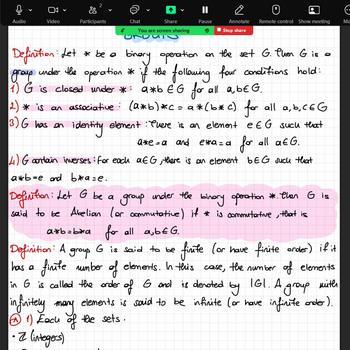 Audio Video Participants Chat Share Pause Annotate Remote control Show meeting
2
You are screen sharing Stop share
Definition: Let * be a binary operation on the set G. Then G is a
group under the operation * if the following four conditions hold:
1) G is closed under *: a*b ∈ G for all a,b∈G.
2) * is an associative: (a*b)*c = a*(b*c) for all a,b,c∈G
3) G has an identity element: There is an element e∈G such that
a*e=a and e*a=a for all a∈G.
4) G contain inverses: For each a∈G, there is an element b∈G such that
a*b=e and b*a=e.
Definition: Let G be a group under the binary operation *. Then G is
said to be Abelian (or commutative) if * is commutative, that is
a*b=b*a for all a,b∈G.
Definition: A group G is said to be finite (or have finite order) if it
has a finite number of elements. In this case, the number of elements
in G is called the order of G and is denoted by |G|. A group with
infinitely many elements is said to be infinite (or have infinite order).
1) Each of the sets.
• Z (integers)